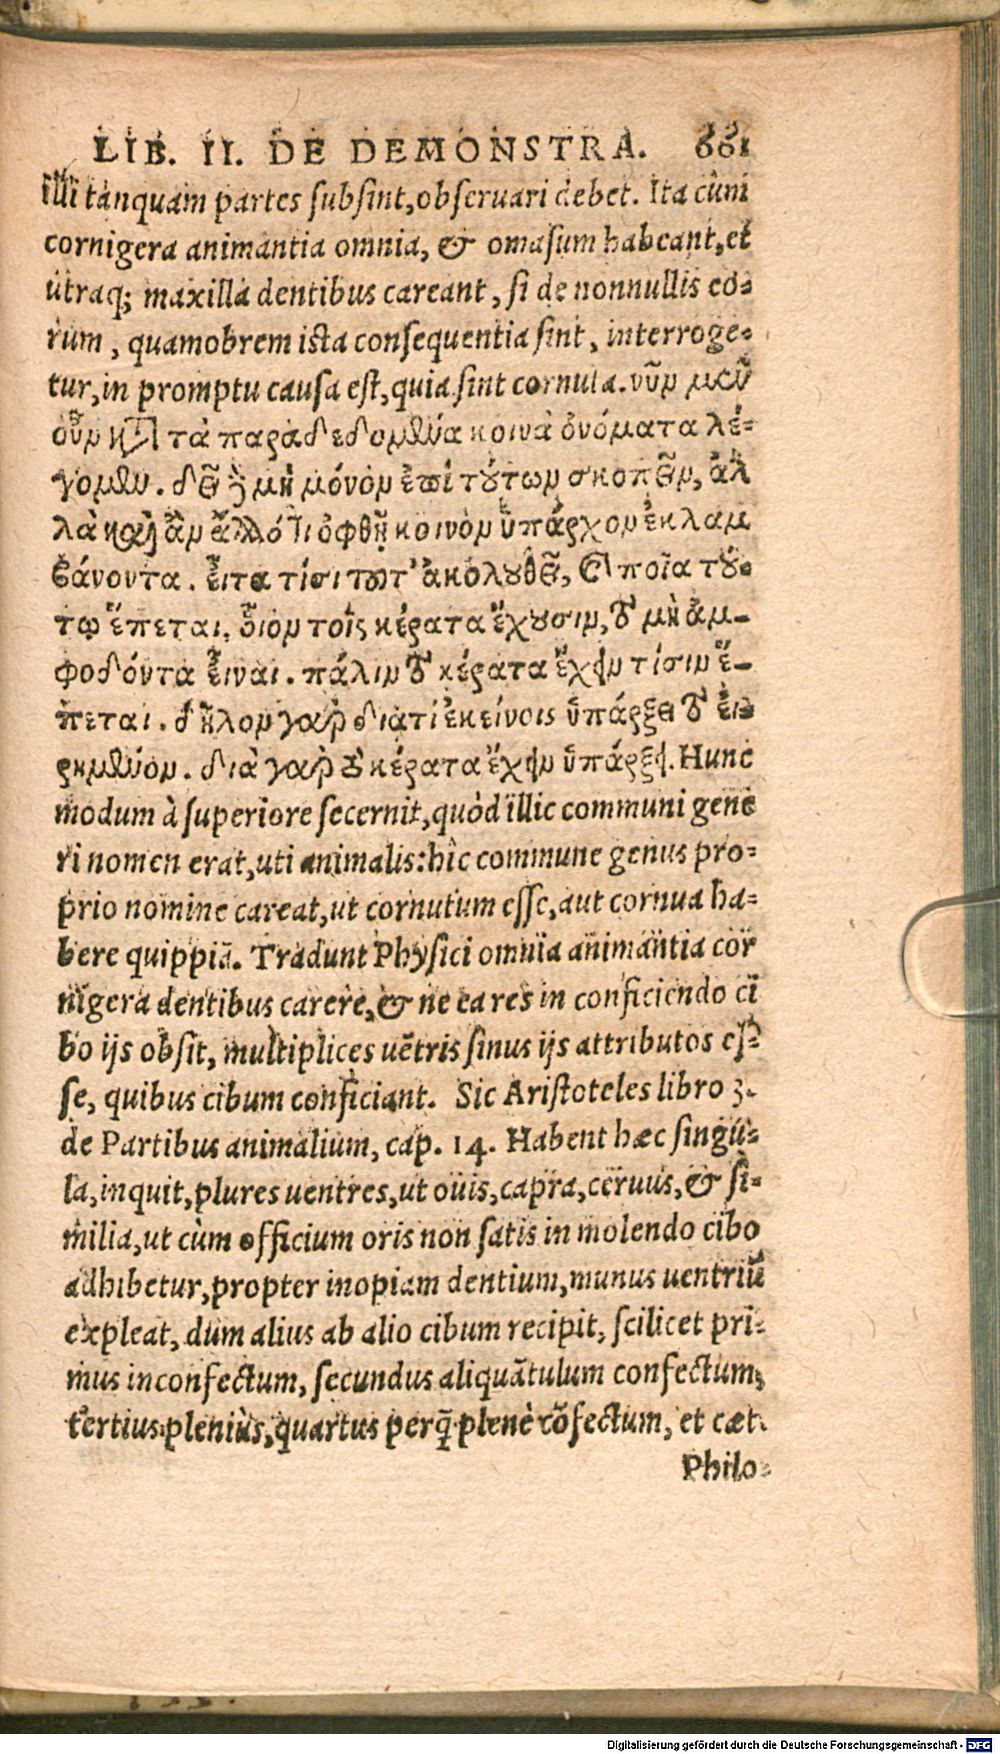 LIB. II. DE DEMONSTRA. 661
illi tanquam partes subsint, obseruari debet. Ita cùm
cornigera animantia omnia, & omasum habeant, et
utraq; maxilla dentibus careant, si de nonnullis eo-
rum, quamobrem ista consequentia sint, interroge-
tur, in promptu causa est, quia sint cornuta. νῦν μὲν
οὖν κατὰ τὰ παραδεδομένα κοινὰ ὀνόματα λέ-
γομεν. δεῖ δὲ μὴ μόνον ἐπὶ τούτων σκοπεῖν, ἀλ
λὰ καὶ ἂν ἄλλό τι ὀφθῇ κοινὸν ὑπάρχον ἐκλαμ
βάνοντα. εἶτα τίσι τοῦτ' ἀκολουθεῖ, καὶ ποῖα τού-
τῳ ἕπεται. οἷον τοῖς κέρατα ἔχουσιν, τὸ μὴ ἀμ-
φοδόντα εἶναι. πάλιν τὸ κέρατα ἔχειν τίσιν ἕ-
πεται. δῆλον γὰρ διατί ἐκείνοις ὑπάρξει τὸ εἰ-
ρημένον. διὰ γὰρ τὸ κέρατα ἔχειν ὑπάρξει. Hunc
modum à superiore secernit, quòd illic communi gene
ri nomen erat, uti animalis: hîc commune genus pro-
prio nomine careat, ut cornutum esse, aut cornua ha-
bere quippiā. Tradunt Physici omnia animantia cor
nigera dentibus carere, & ne ea res in conficiendo ci
bo ijs obsit, multiplices uētris sinus ijs attributos es-
se, quibus cibum conficiant. Sic Aristoteles libro 3.
de Partibus animalium, cap. 14. Habent hæc singu-
la, inquit, plures uentres, ut ouis, capra, ceruus, & si-
milia, ut cùm officium oris non satis in molendo cibo
adhibetur, propter inopiam dentium, munus uentriū
expleat, dum alius ab alio cibum recipit, scilicet pri-
mus inconfectum, secundus aliquātulum confectum,
tertius pleniùs, quartus perq̄ plenè cōfectum, et cæt.
Philo-
Digitalisierung gefördert durch die Deutsche Forschungsgemeinschaft - DFG